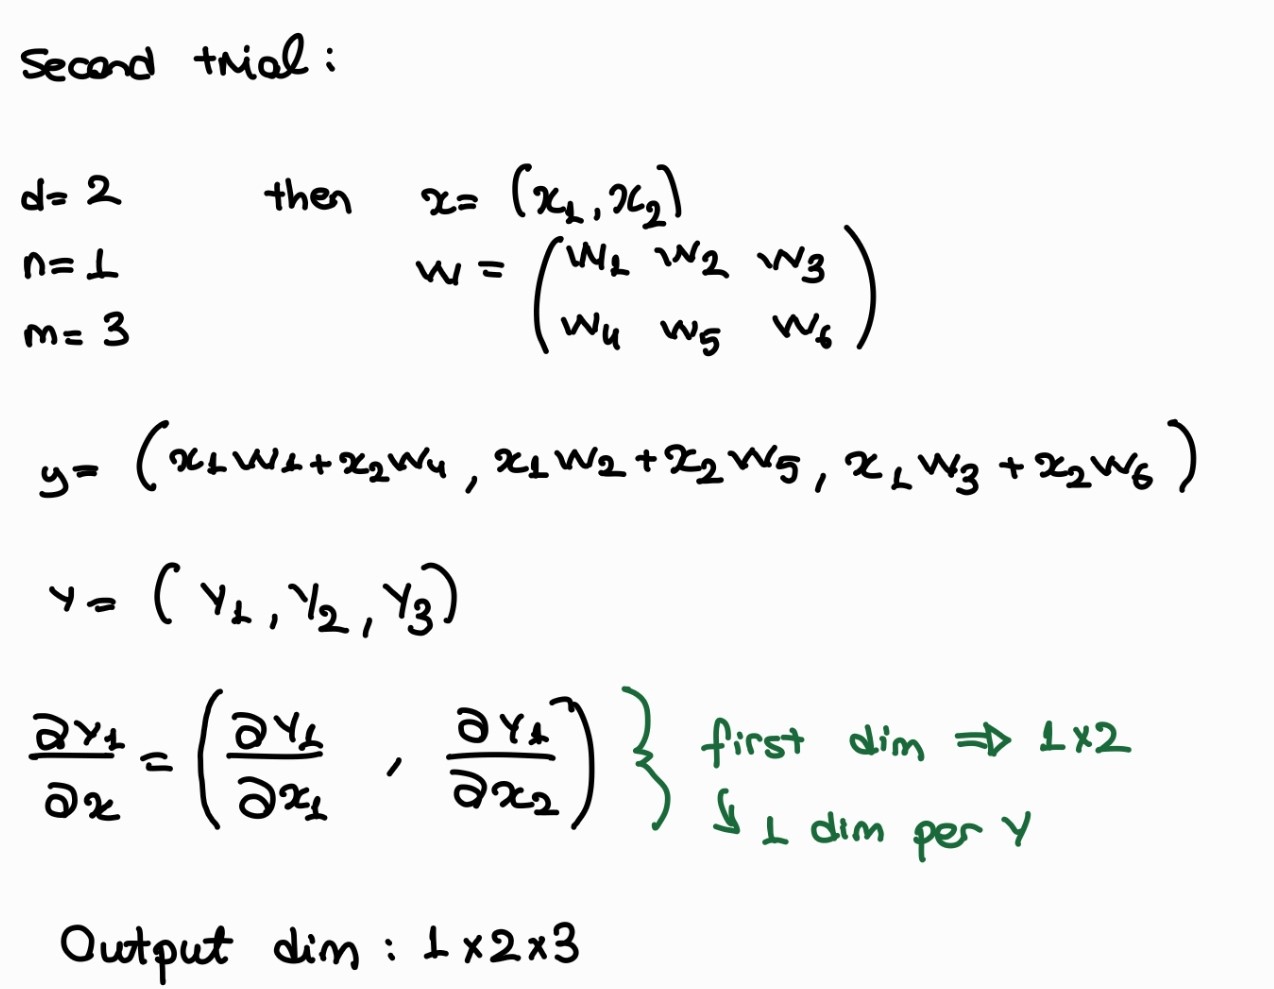 Second trial:
d= 2 then x= (x1, x2)
n= 1 w = (w1 w2 w3
m= 3 w4 w5 w6)
y= (x1w1+x2w4, x1w2+x2w5, x1w3+x2w6)
Y= (Y1, Y2, Y3)
∂Y1/∂x = (∂Y1/∂x1, ∂Y1/∂x2) } first dim ⇒ 1x2
↳ 1 dim per Y
Output dim: 1x2x3